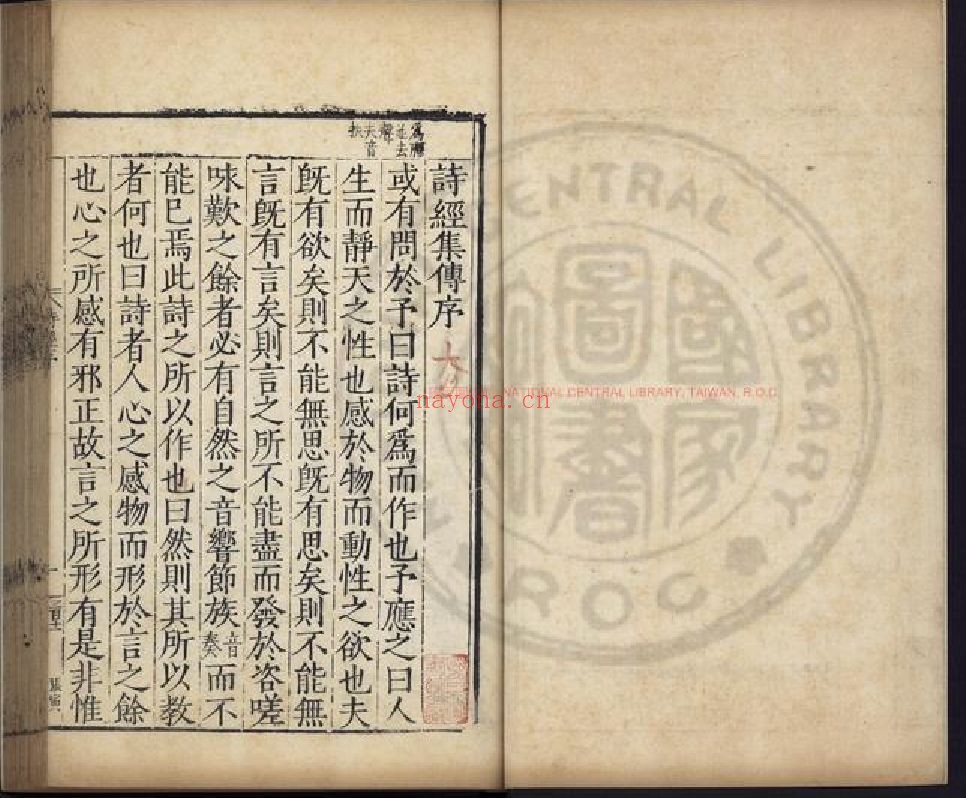 詩經集傳序
或有問於予曰詩何爲而作也予應之曰人
生而靜天之性也感於物而動性之欲也夫
旣有欲矣則不能無思旣有思矣則不能無
言旣有言矣則言之所不能盡而發於咨嗟
咏歎之餘者必有自然之音響節族音奏而不
能已焉此詩之所以作也曰然則其所以教
者何也曰詩者人心之感物而形於言之餘
也心之所感有邪正故言之所形有是非惟
爲去聲夫音扶
nayona.cn
NATIONAL CENTRAL LIBRARY, TAIWAN, R.O.C.
CENTRAL LIBRARY
R.O.C.
國家圖書